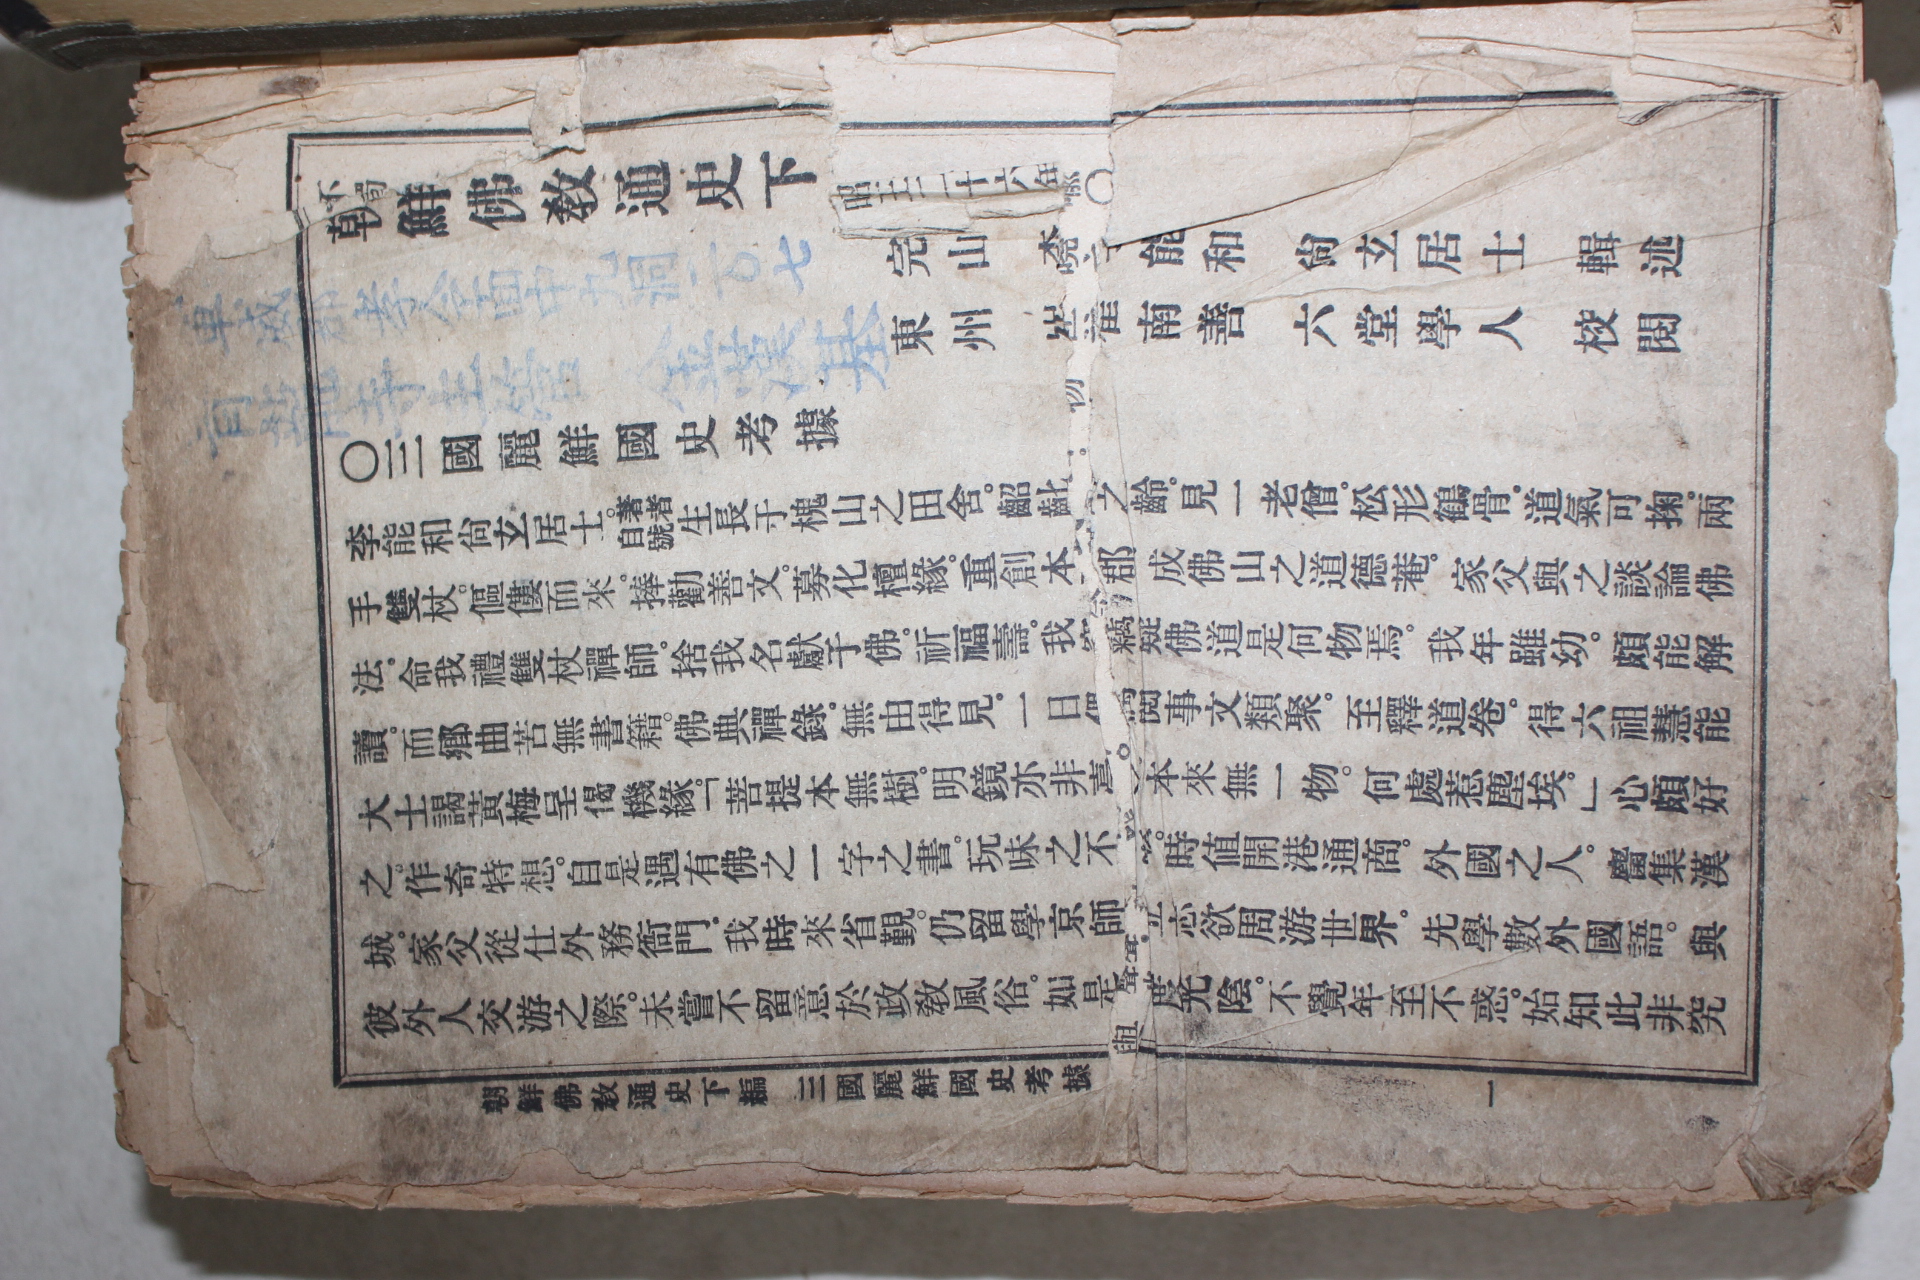 朝鮮佛教通史下
完山 能和 尙玄居士 輯述
東州 崔南善 六堂學人 校閱
軍威郡孝令面中九洞二〇七
靑龍寺主管 金漢基
〇三國麗鮮國史考據
李能和尙玄居士。著者自號生長于槐山之田舍。齠齔之齡。見一老僧。松形鶴骨。道氣可掬。兩
手雙杖。傴僂而來。捧勸善文。募化檀緣。重創本郡 成佛山之道德菴。家父與之談論佛
法。命我禮雙杖禪師。捨我名獻于佛。祈福壽。我竊疑佛道是何物焉。我年雖幼。頗能解
讀。而鄕曲苦無書籍。佛典禪錄。無由得見。一日偶閱事文類聚。至釋道卷。得六祖慧能
大士謁黃梅呈偈機緣。「菩提本無樹。明鏡亦非臺。本來無一物。何處惹塵埃。」心頗好
之。作奇特想。自是遇有佛之一字之書。玩味之不 時値開港通商。外國之人。麕集漢
城。家父從仕外務衙門。我時來省覲。仍留學京師 立志欲周游世界。先學數外國語。與
彼外人交游之際。未嘗不留意於政敎風俗。如是 度光陰。不覺年至不惑。始知此非究
朝鮮佛敎通史下編 三國麗鮮國史考據
一